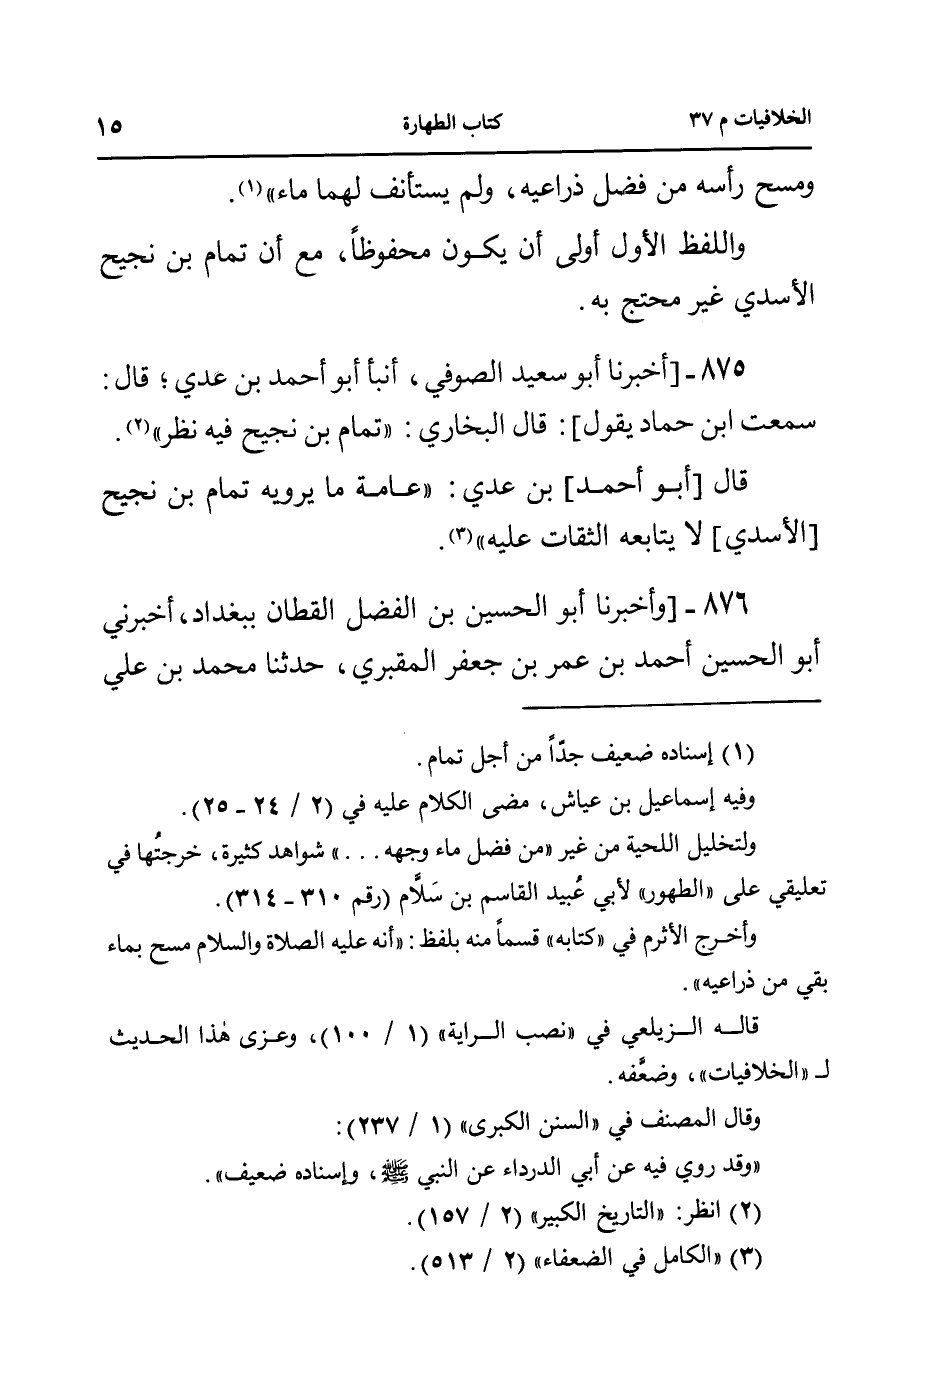 الخلافيات م ٣٧ كتاب الطهارة ١٥
ومسح رأسه من فضل ذراعيه، ولم يستأنف لهما ماء»(١).
واللفظ الأول أولى أن يكون محفوظاً، مع أن تمام بن نجيح
الأسدي غير محتج به.
٨٧٥ ـ [أخبرنا أبو سعيد الصوفي، أنبأ أبو أحمد بن عدي؛ قال:
سمعت ابن حماد يقول]: قال البخاري: «تمام بن نجيح فيه نظر»(٢).
قال [أبو أحمد] بن عدي: «عامة ما يرويه تمام بن نجيح
[الأسدي] لا يتابعه الثقات عليه»(٣).
٨٧٦ ـ [وأخبرنا أبو الحسين بن الفضل القطان ببغداد، أخبرني
أبو الحسين أحمد بن عمر بن جعفر المقبري، حدثنا محمد بن علي
(١) إسناده ضعيف جدّاً من أجل تمام.
وفيه إسماعيل بن عياش، مضى الكلام عليه في (٢ / ٢٤ ـ ٢٥).
ولتخليل اللحية من غير «من فضل ماء وجهه...» شواهد كثيرة، خرجتُها في
تعليقي على «الطهور» لأبي عُبيد القاسم بن سَلَّام (رقم ٣١٠ ـ ٣١٤).
وأخرج الأثرم في «كتابه» قسماً منه بلفظ: «أنه عليه الصلاة والسلام مسح بماء
بقي من ذراعيه».
قاله الزيلعي في «نصب الراية» (١ / ١٠٠)، وعزى هٰذا الحديث
لـ «الخلافيات»، وضعَّفه.
وقال المصنف في «السنن الكبرى» (١ / ٢٣٧):
«وقد روي فيه عن أبي الدرداء عن النبي ﷺ، وإسناده ضعيف».
(٢) انظر: «التاريخ الكبير» (٢ / ١٥٧).
(٣) «الكامل في الضعفاء» (٢ / ٥١٣).